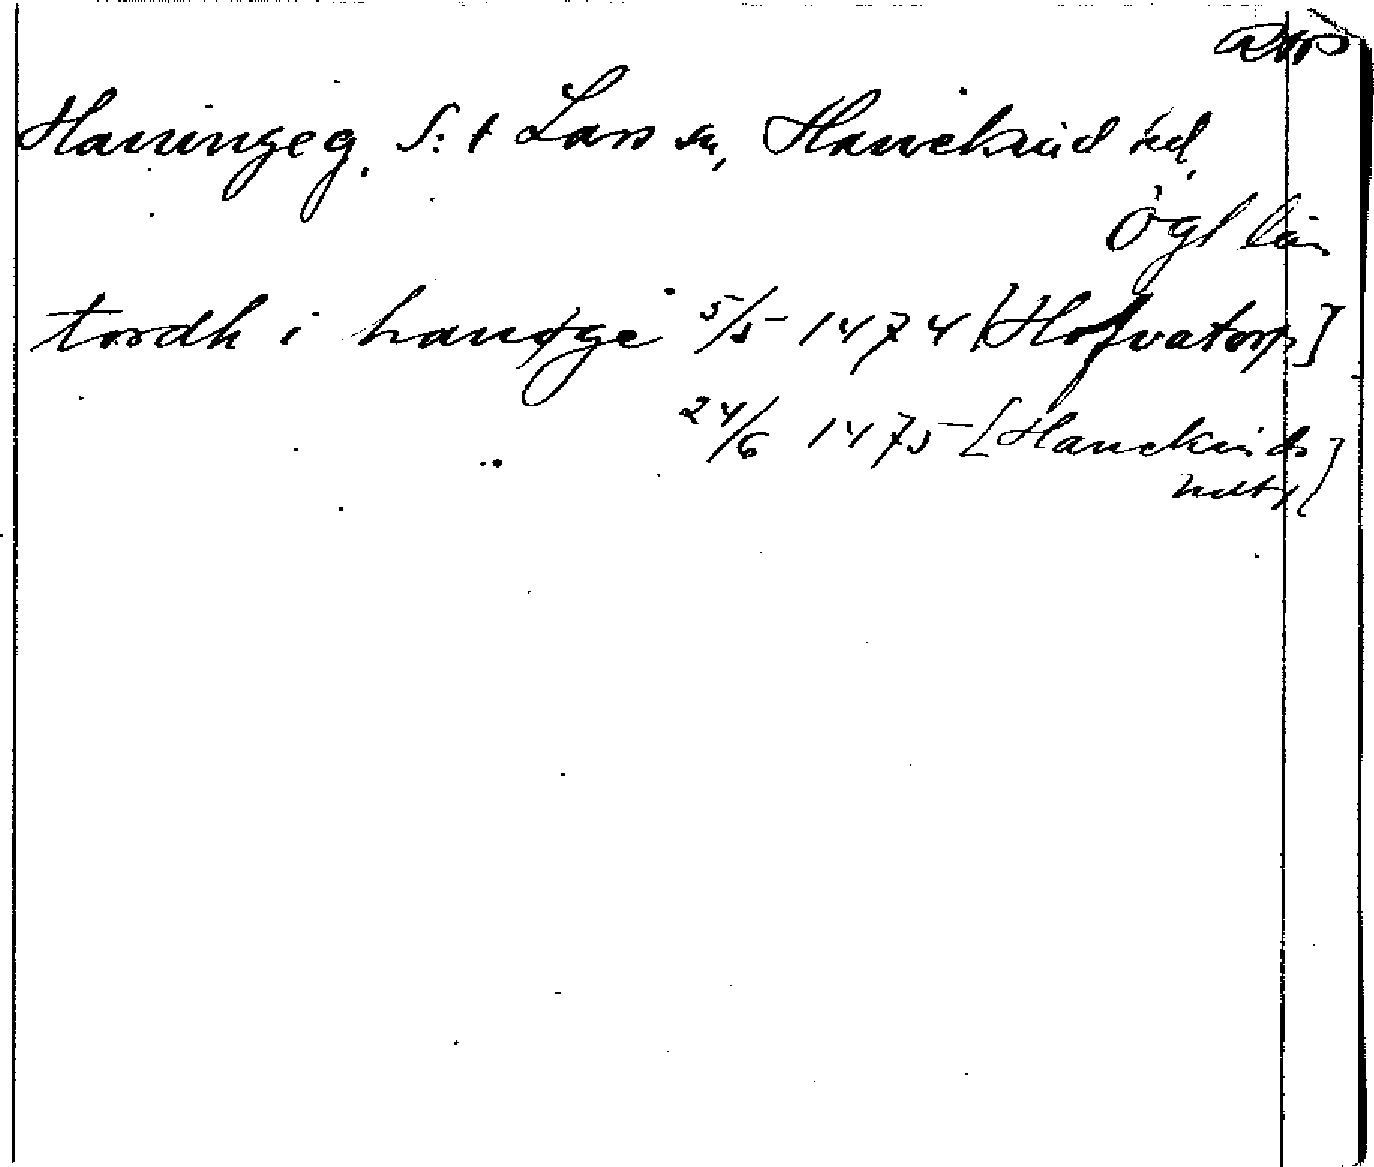 Hauningeg. S:t Lars sn, Hanekind hd,
Ögl län
tordh i haunge 5/5 1474 [Hofvatorp]
24/6 1475 [Hanekinds